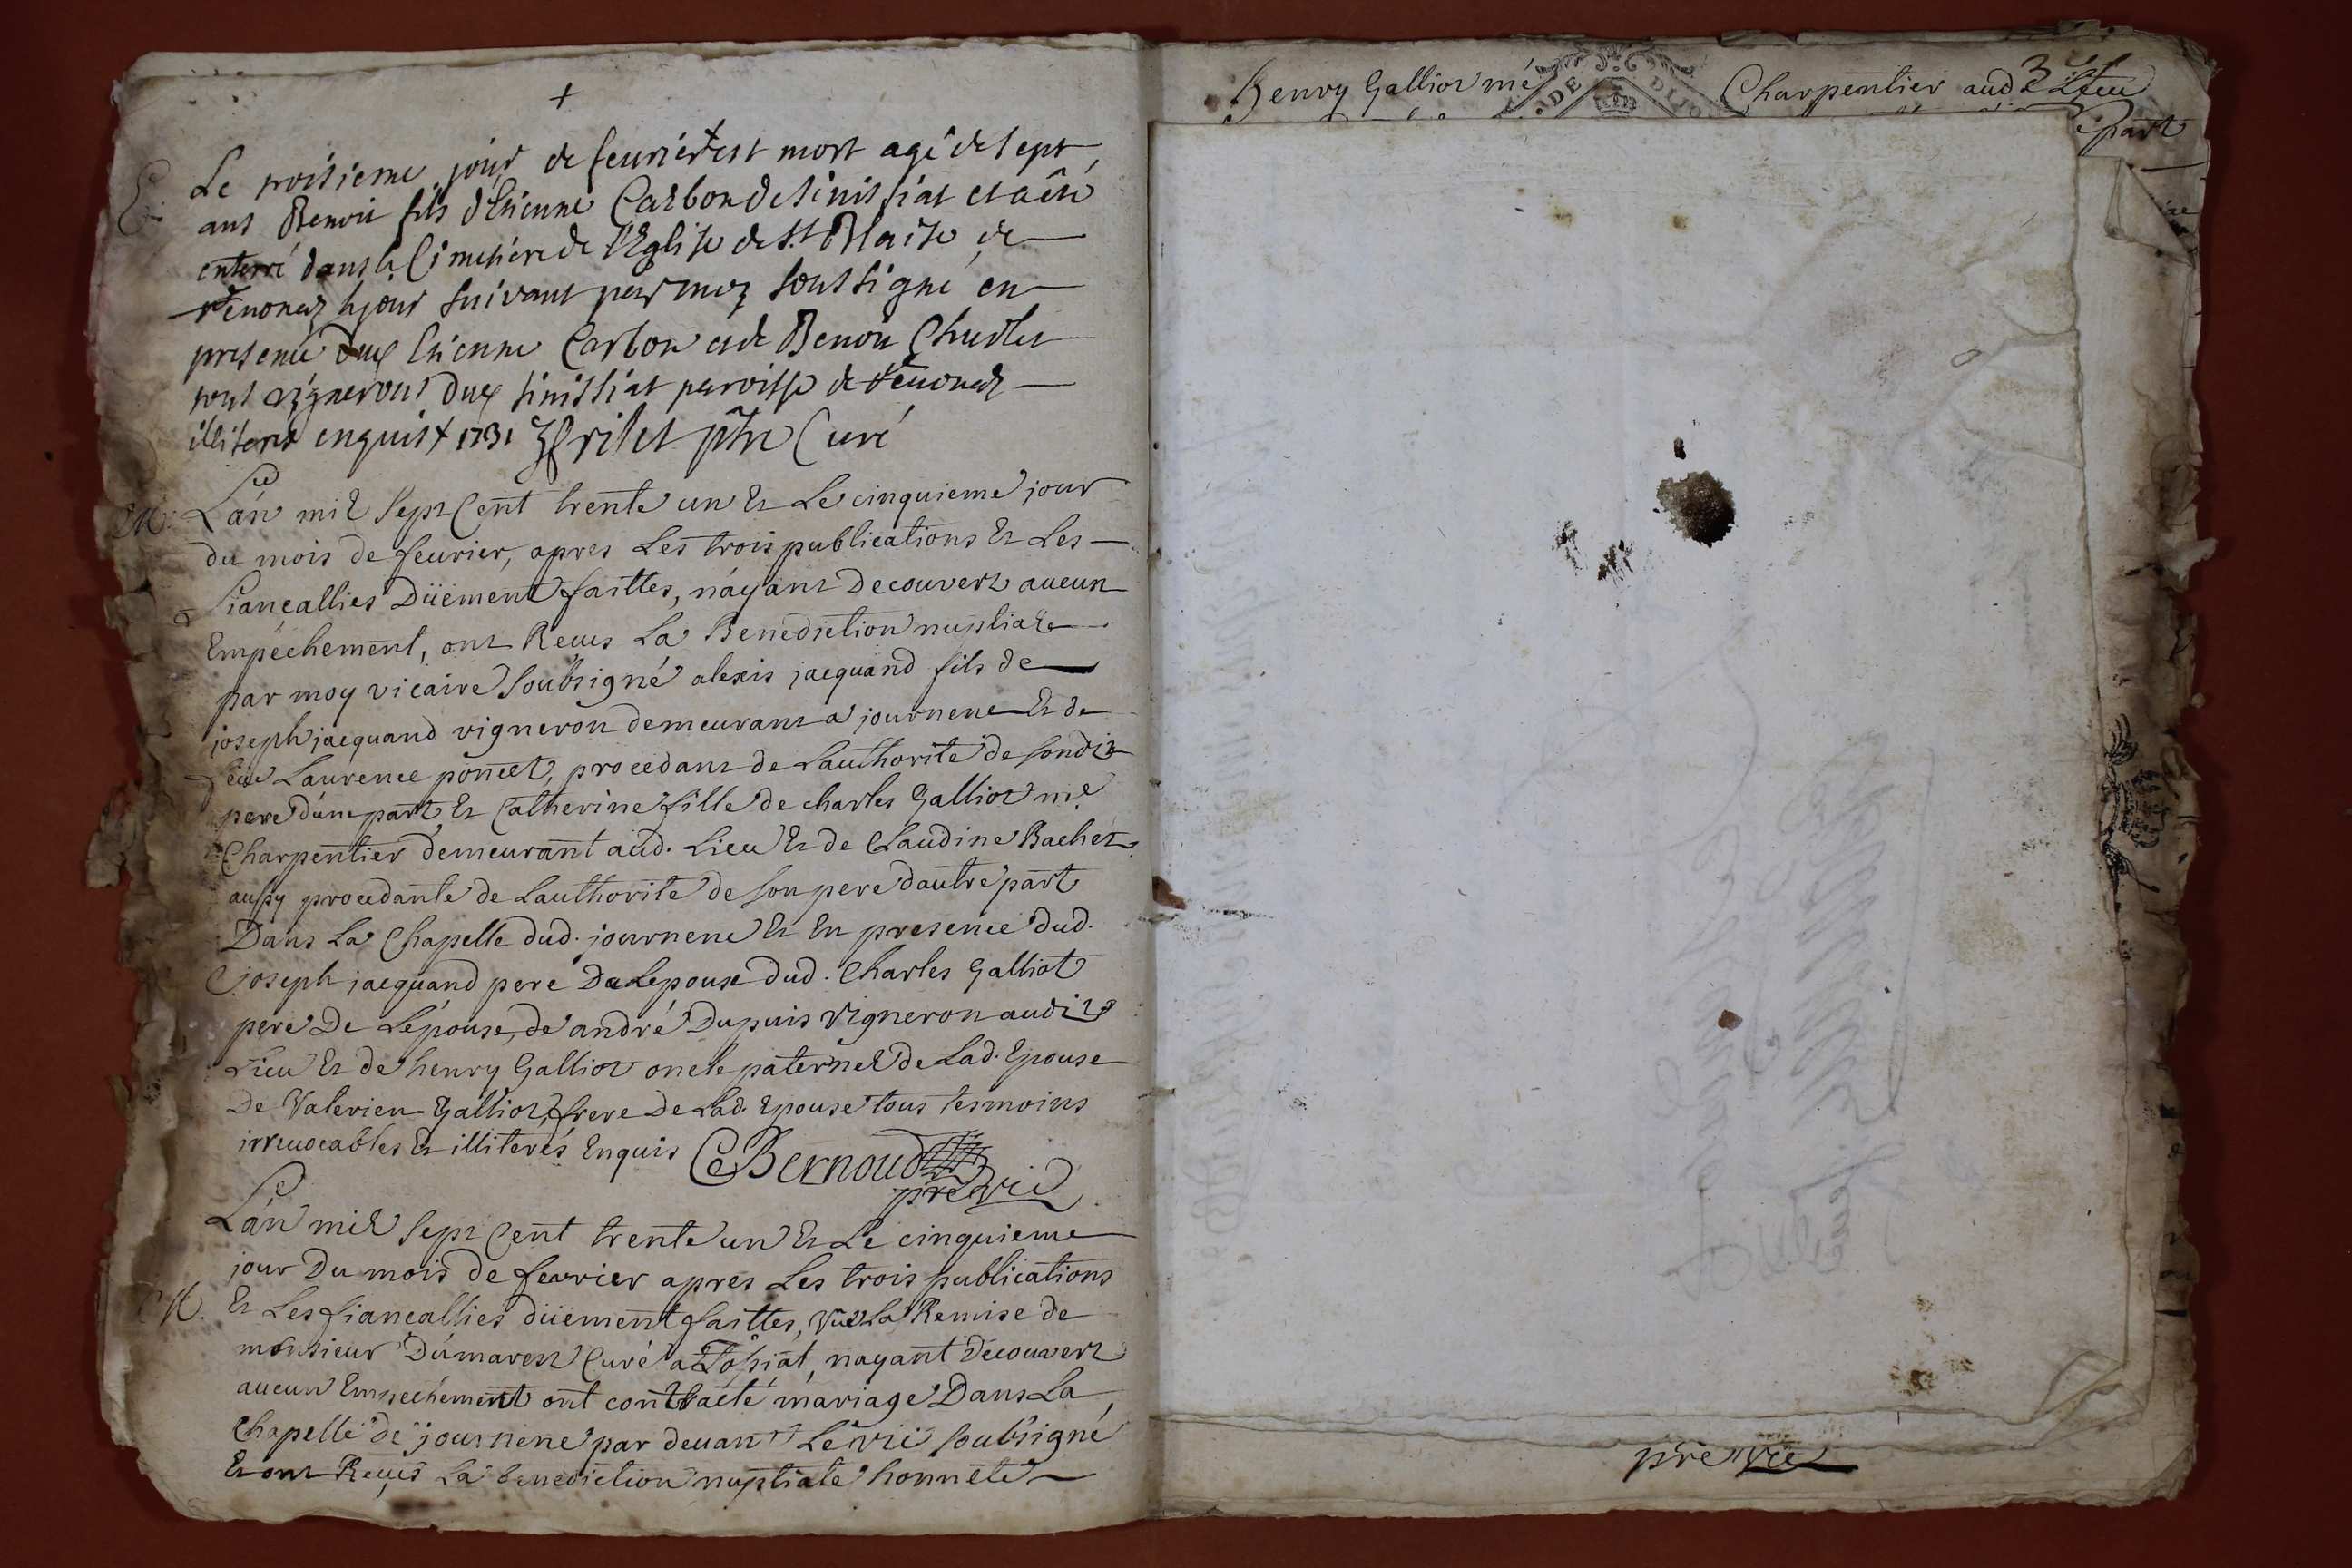 +
Le troisieme jour de feurier+ est mort agé de sept
E. ans Benoit fils d'Etienne Carbon de sinissiat et a êté
enterré dans le Cimetière de l'Eglise de St Blaise de
reuonaz le jour suivant par moy soussigné en
presence dud Etienne Carbon et de Benoit Charlet
tous vignerons dud sinissiat paroisse de reuonaz
illiterés enquis + 1731 Frilet ptre Curé
M. L'an mil sept Cent trente un Et Le cinquieme jour
du mois de feurier, apres Les trois publications Et Les
fiançallies Düement faittes, n'ayant Decouvert aucun
Empéchement, ont Reçus La Benediction nuptiale
par moy vicaire Soubsigné alexis jacquand fils de
joseph jacquand vigneron demeurant a journene Et de
feüe Laurence poncet, procedant de Lauthorité de sondit
pere d'une part, Et Catherine fille de charles Galliot me
Charpentier demeurant aud. Lieu Et de Claudine Bachet
aussy procedante de Lauthorite de son pere d'autre part
Dans La Chapelle dud. journene Et En presence dud.
joseph jacquand pere De Lepoux dud. Charles Galliot
pere De Lépouse, de andré Dupuis vigneron audit
Lieu Et de henry Galliot oncle paternel de Lad. Epouse
De Valerien Galliot, frere De Lad. Epouse tous tesmoins
irreuocables Et illiterés Enquis CBernoud
pre vic
L'an mil Sept Cent trente un Et Le cinquieme
jour Du mois de fevrier apres Les trois publications
M. Et Les fiancallies düement faittes, Vüe La Remise de
monsieur Dumarest Curé a Tossiat, nayant Decouvert
aucun Empechement ont contracté mariage Dans La
Chapelle de journene par deuant Le vic soubsigné
Et ont Reçus La benediction nuptiale honnete
Henry Galliot me Charpentier aud Lieu
DE DIJO
3
part
pre vic